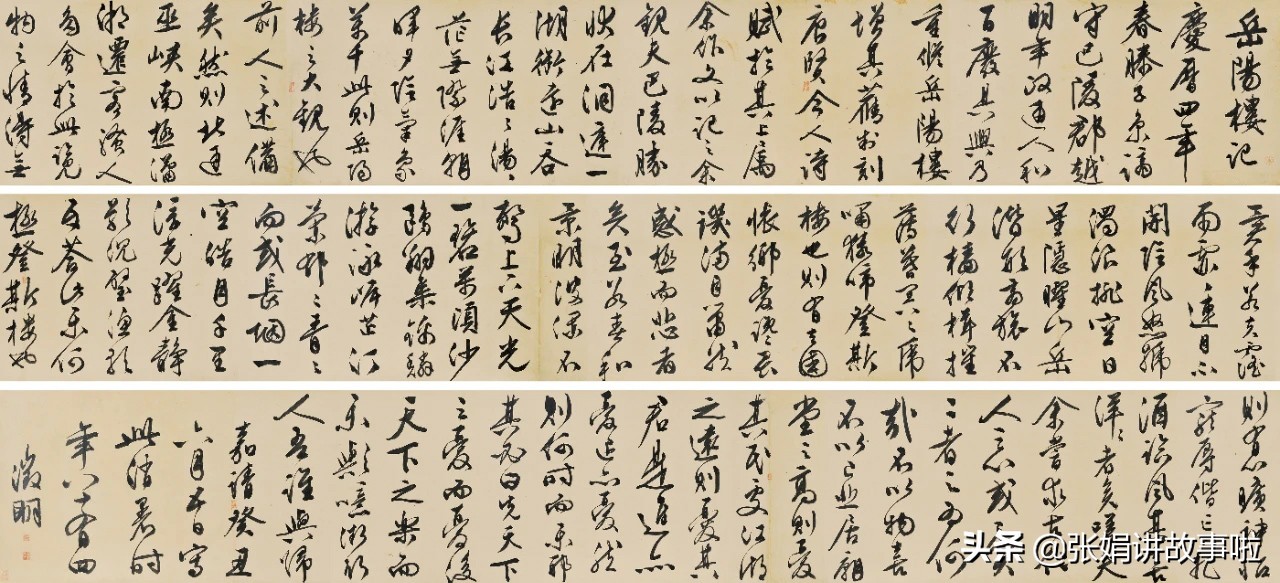 岳陽樓記
慶曆四年
春滕子京謫
守巴陵郡越
明年政通人和
百廢具興乃
重修岳陽樓
增其舊制刻
唐賢今人詩
賦於其上屬
余作文以記之余
觀夫巴陵勝
狀在洞庭一
湖銜遠山吞
長江浩〻湯〻
茫無際涯朝
暉夕陰氣象
萬千此則岳陽
樓之大觀也
前人之述備
矣然則北通
巫峽南極瀟
湘遷客騷人
多會於此覽
物之情得無
異乎若夫霪
雨霏〻連月不
開陰風怒號
濁浪排空日
星隱曜山岳
潛形商旅不
行檣傾楫摧
薄暮冥〻虎
嘯猿啼登斯
樓也則有去國
懷鄉憂讒畏
譏滿目蕭然
感極而悲者
矣至若春和
景明波瀾不
驚上下天光
一碧萬頃沙
鷗翔集錦鱗
游泳岸芷汀
蘭郁〻青〻
而或長煙一
空皓月千里
浮光躍金靜
影沉璧漁歌
互答此樂何
極登斯樓也
則有心曠神怡
寵辱偕忘把
酒臨風其喜
洋〻者矣嗟夫
余嘗求古仁
人之心或異
二者之為何
哉不以物喜
不以己悲居廟
堂之高則憂
其民處江湖
之遠則憂其
君是進亦
憂退亦憂然
則何時而樂耶
其必曰先天下
之憂而憂後
天下之樂而
樂歟噫微斯
人吾誰與歸
嘉靖癸丑
六月五日寫
此消暑時
年八十有四
徵明
头条 @张娟讲故事啦